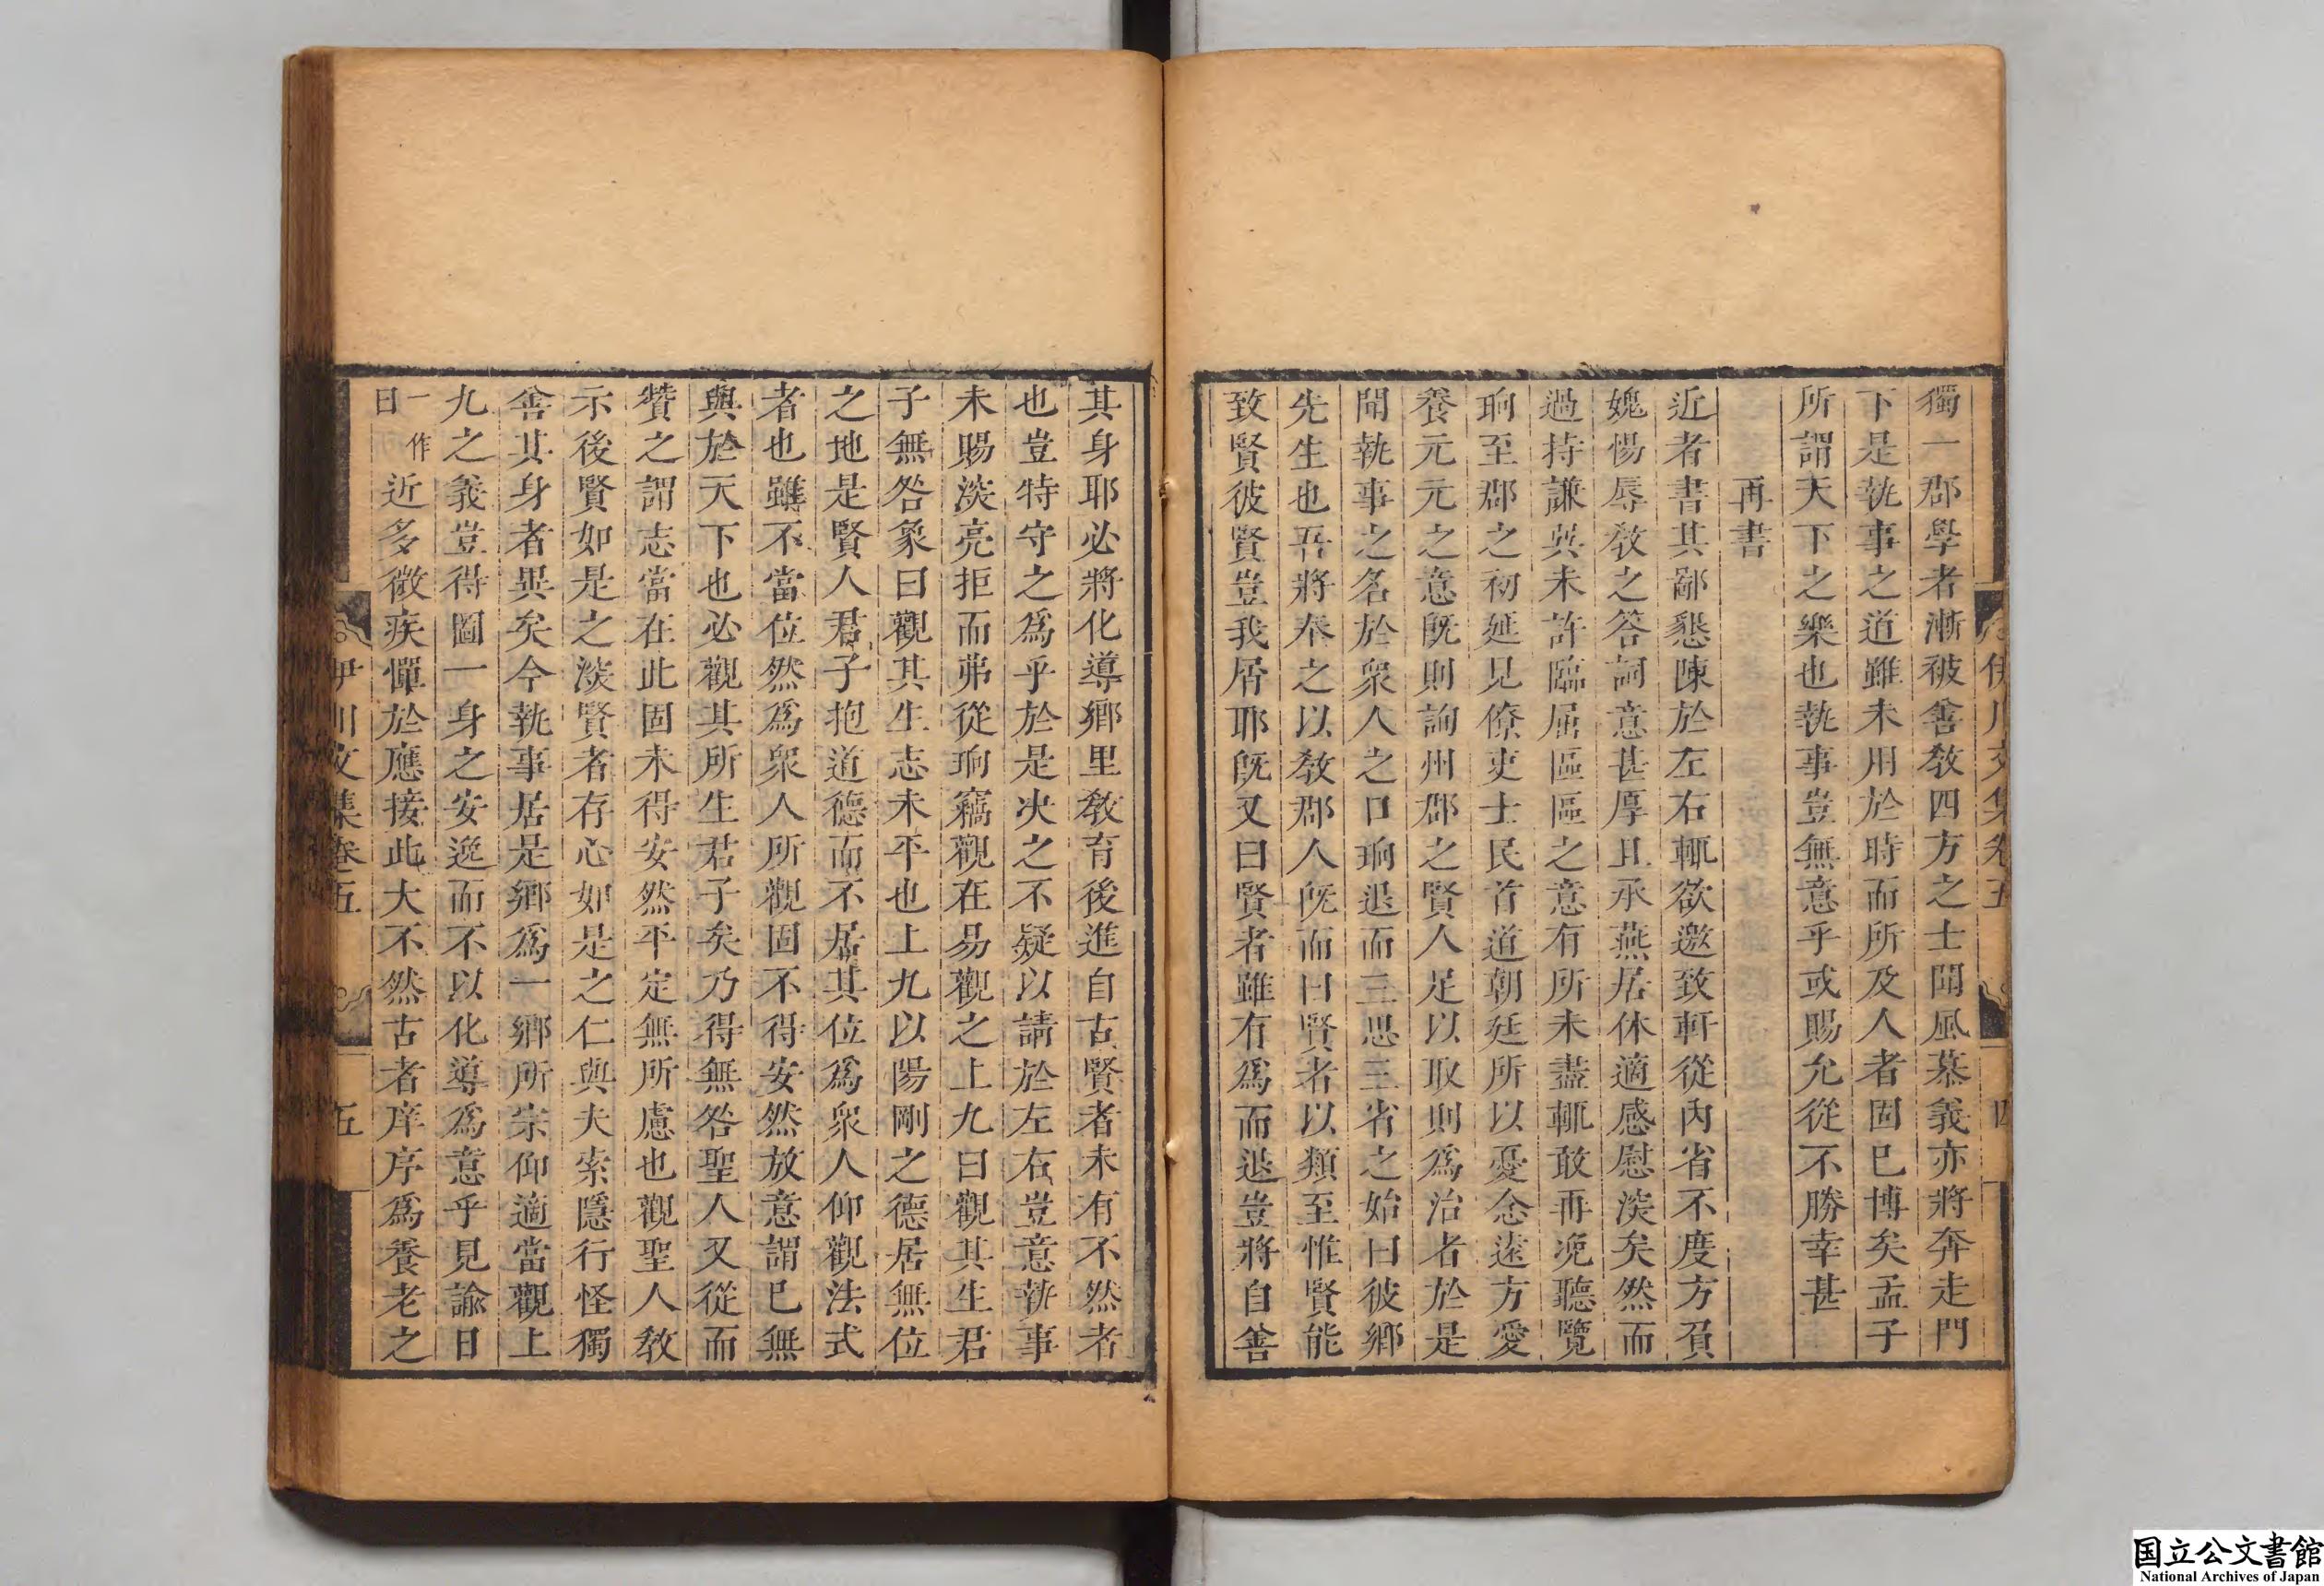 伊川文集卷五
四
獨一郡學者漸被善教四方之士聞風慕義亦將奔走門
下是執事之道雖未用於時而所及人者固已博矣孟子
所謂天下之樂也執事豈無意乎或賜允從不勝幸甚
再書
近者書其鄙懇陳於左右輒欲邀致軒從內省不度方負
媿惕辱教之答詞意甚厚且承燕居休適感慰淡矣然而
過持謙㢲未許臨屈區區之意有所未盡輒敢再凂聽覽
珦至郡之初延見僚吏士民首道朝廷所以憂念遠方愛
養元元之意旣則詢州郡之賢人足以取則爲治者於是
聞執事之名於衆人之口珦退而三思三省之始曰彼鄉
先生也吾將奉之以教郡人旣而曰賢者以類至惟賢能
致賢彼賢豈我居耶旣又曰賢者雖有爲而退豈將自善
其身耶必將化導鄉里教育後進自古賢者未有不然者
也豈特守之爲乎於是决之不疑以請於左右豈意執事
未賜淡亮拒而弗從珦竊觀在易觀之上九曰觀其生君
子無咎象曰觀其生志未平也上九以陽剛之德居無位
之地是賢人君子抱道德而不居其位爲衆人仰觀法式
者也雖不當位然爲衆人所觀固不得安然放意謂已無
與於天下也必觀其所生君子矣乃得無咎聖人又從而
贊之謂志當在此固未得安然平定無所慮也觀聖人教
示後賢如是之淡賢者存心如是之仁與夫索隱行怪獨
善其身者異矣今執事居是鄉爲一鄉所宗仰適當觀上
九之義豈得圖一身之安逸而不以化導爲意乎見諭日
一作
日
近多微疾憚於應接此大不然古者庠序爲養老之
伊川文集卷五
五
国立公文書館
National Archives of Japan